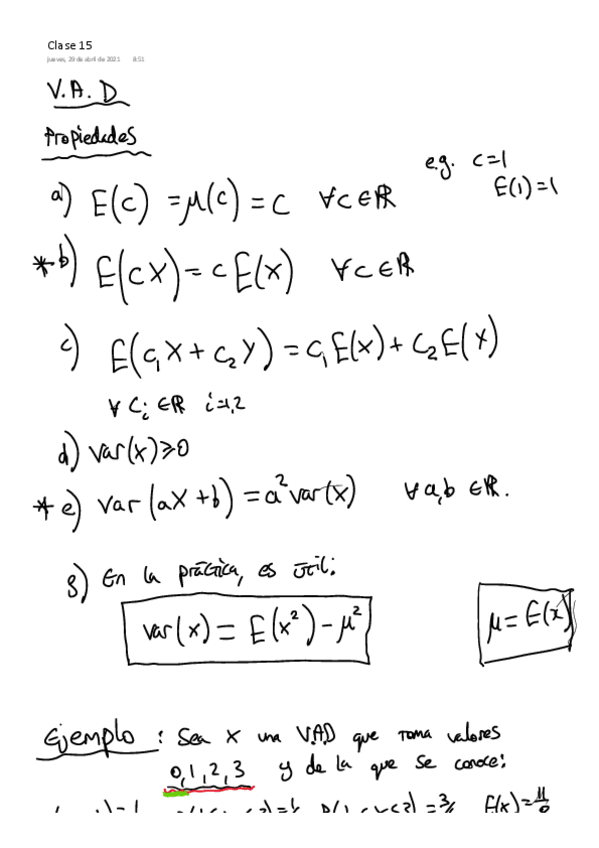 Clase 15
jueves, 29 de abril de 2021 8:51
V.A.D
Propiedades
e.g. c=1
E(1)=1
a) E(c) = μ(c) = c ∀c∈ℝ
* b) E(cX) = cE(x) ∀c∈ℝ
c) E(c₁X + c₂Y) = c₁E(x) + c₂E(Y)
∀ Cᵢ ∈ℝ i=1,2
d) Var(x)≥0
* e) Var (aX + b) = a² var(x) ∀ a,b ∈ℝ.
g) En la práctica, es útil:
var(x) = E(x²) - μ²
μ = E(x)
Ejemplo : Sea X una V.A.D que toma valores
0,1,2,3 y de la que se conoce: